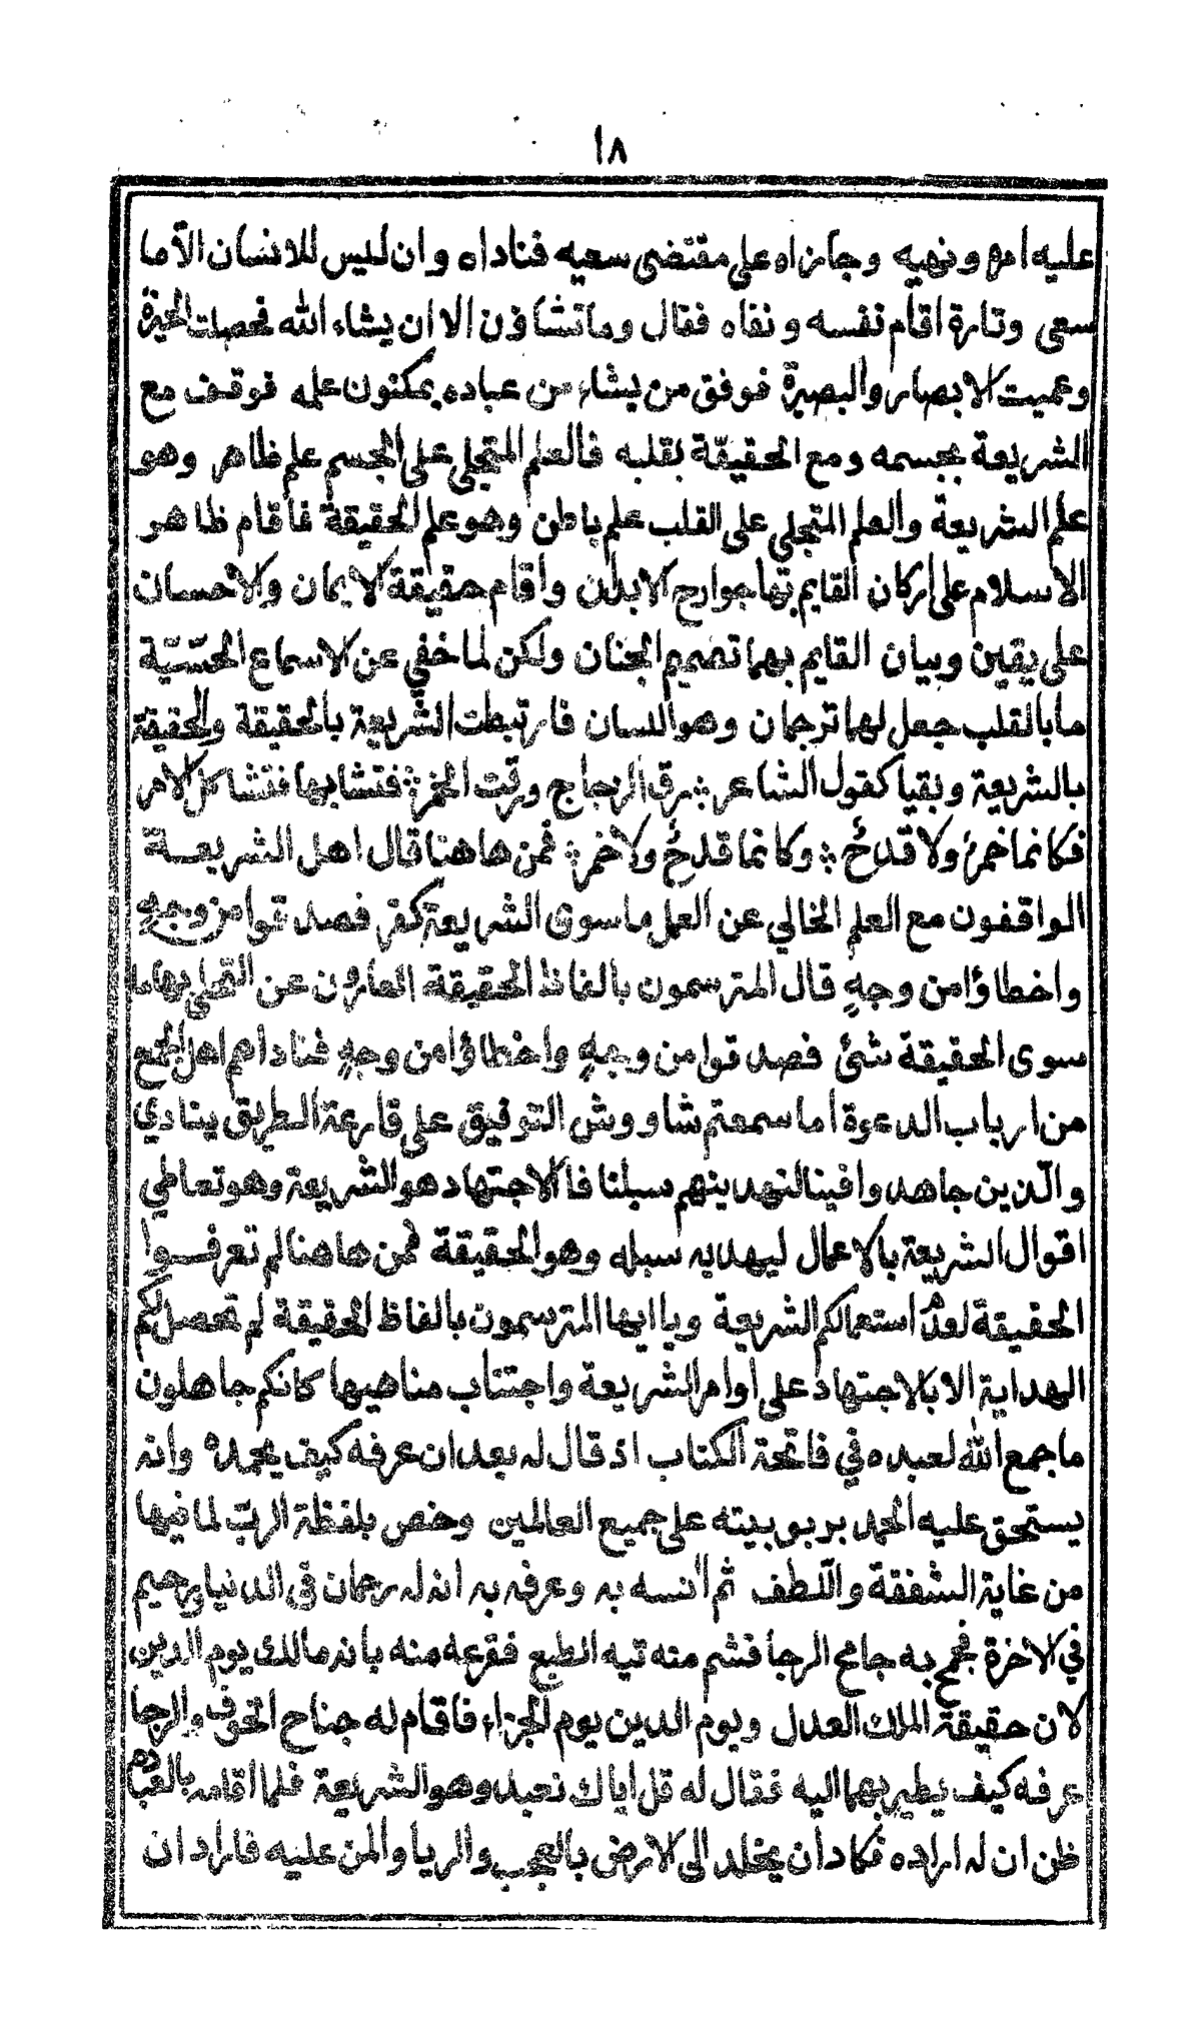 ١٨
عليه امره ونهيه وجازاه على مقتضى سعيه فناداه وان ليس للانسان الّا ما
سعى وتارة اقام نفسه ونفاه فقال وما تشاؤن الا ان يشاء الله فحصلت الحيرة
وعميت الابصار والبصيرة فوفق من يشاء من عباده بمكنون علمه فوقف مع
الشريعة بجسمه ومع الحقيقة بقلبه فالعلم المتجلي على الجسم علم ظاهر وهو
علم الشريعة والعلم المتجلي على القلب علم باطن وهو علم الحقيقة فاقام ظاهر
الاسلام على اركان القايم بها جوارح الابدان واقام حقيقة الايمان والاحسان
على يقين وبيان القايم بهما تصميم الجنان ولكن لما خفي عن الاسماع الحسّيّة
ما بالقلب جعل لهما ترجمان وهو اللسان فارتبطت الشريعة بالحقيقة والحقيقة
بالشريعة وبقيا كقول الشاعر ؞ رق الزجاج ورقت الخمر ؞ فتشابها فتشاكل الامر
فكانما خمرٌ ولا قدحٌ ؞ وكانما قدحٌ ولا خمر ؞ فمن هاهنا قال اهل الشريعة
الواقفون مع العلم الخالي عن العمل ما سوى الشريعة كفر فصدقوا من وجهٍ
واخطاؤا من وجهٍ قال المترسمون بالفاظ الحقيقة العارون عن التحلي بها ما
سوى الحقيقة شئ فصدقوا من وجهٍ واخطاؤا من وجهٍ فناداهم اهل الجمع
من ارباب الدعوة اما سمعتم شاووش التوفيق على قارعة الطريق ينادي
والّذين جاهدوا فينا لنهدينهم سبلنا فالاجتهاد هو الشريعة وهو تعاطي
اقوال الشريعة بالاعمال ليهديه سبله وهو الحقيقة فمن هاهنا لم تعرفوا
الحقيقة لعدم استعمالكم الشريعة ويا ايها المترسمون بالفاظ الحقيقة لم تحصل لكم
الهداية الا بالاجتهاد على اوامر الشريعة واجتناب مناهيها كانكم جاهلون
ما جمع الله لعبده في فاتحة الكتاب اذ قال له بعد ان عرفه كيف يحمده وانه
يستحق عليه الحمد بربوبيته على جميع العالمين وخص بلفظة الربّ لما فيها
من غاية الشفقة واللّطف ثم انسه به وعرفه به انه له رحمان في الدنيا ورحيم
في الاخرة فجمح به جامح الرجا فشم منه تيه الطبع فقرعه منه بانه مالك يوم الدين
لان حقيقة الملك العدل ويوم الدين يوم الجزاء فاقام له جناح الخوف والرجا
عرفه كيف يطير بهما اليه فقال له قل اياك نعبد وهو الشريعة فلما اقامه بالعبادة
ظن ان له اراده فكاد أن يخلد الى الارض بالعجب والريا والمن عليه فاراد ان